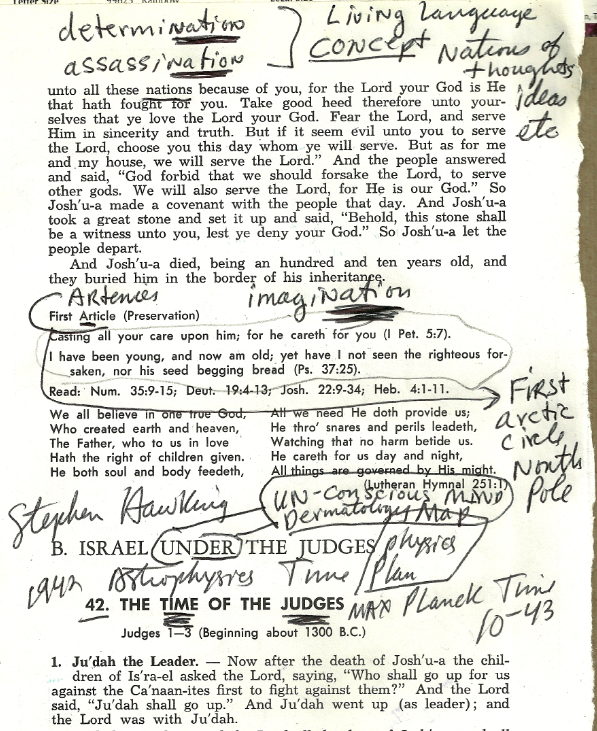 determination
assassination
Living language
CONCEPT Nations of
thoughts
ideas
etc
unto all these nations because of you, for the Lord your God is He
that hath fought for you. Take good heed therefore unto your-
selves that ye love the Lord your God. Fear the Lord, and serve
Him in sincerity and truth. But if it seem evil unto you to serve
the Lord, choose you this day whom ye will serve. But as for me
and my house, we will serve the Lord." And the people answered
and said, "God forbid that we should forsake the Lord, to serve
other gods. We will also serve the Lord, for He is our God." So
Josh'u-a made a covenant with the people that day. And Josh'u-a
took a great stone and set it up and said, "Behold, this stone shall
be a witness unto you, lest ye deny your God." So Josh'u-a let the
people depart.
And Josh'u-a died, being an hundred and ten years old, and
they buried him in the border of his inheritance.
imagination
First Article (Preservation)
Casting all your care upon him; for he careth for you (I Pet. 5:7).
I have been young, and now am old; yet have I not seen the righteous for-
saken, nor his seed begging bread (Ps. 37:25).
Read: Num. 35:9-15; Deut. 19:4-13; Josh. 22:9-34; Heb. 4:1-11.
First
arctic
circle
North
Pole
We all believe in one true God,
Who created earth and heaven,
The Father, who to us in love
Hath the right of children given.
He both soul and body feedeth,
All we need He doth provide us;
He thro' snares and perils leadeth,
Watching that no harm betide us.
He careth for us day and night,
All things are governed by His might.
(Lutheran Hymnal 251:1)
UN-Conscious MIND
Dermatology Map
Stephen Hawking
B. ISRAEL UNDER THE JUDGES
physics
Plan
1942 Astrophysics Time
42. THE TIME OF THE JUDGES
MAX Planck Time
10-43
Judges 1—3 (Beginning about 1300 B.C.)
1. Ju'dah the Leader. — Now after the death of Josh'u-a the chil-
dren of Is'ra-el asked the Lord, saying, "Who shall go up for us
against the Ca'naan-ites first to fight against them?" And the Lord
said, "Ju'dah shall go up." And Ju'dah went up (as leader); and
the Lord was with Ju'dah.